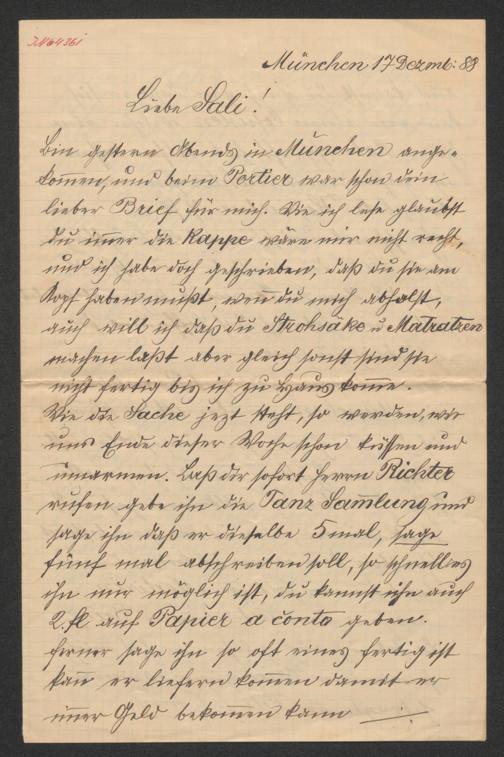 München 17 Dezmb: 88
Liebe Sali!
Bin gestern Abends in München ange-
kom̄en, und beim Portier war schon dein
lieber Brief für mich. Wie ich lese glaubst
du im̄er die Kappe wäre mir nicht recht,
und ich habe doch geschrieben, daß du sie am
Kopf haben mußt, wen̄ du mich abholst,
auch will ich daß du Strohsäke u Matratzen
machen laßt aber gleich sonst sind sie
nicht fertig bis ich zu Haus kom̄e.
Wie die Sache jezt steht, so werden, wir
uns Ende dieser Woche schon küssen und
umarmen. Laß dir sofort Herrn Richter
rufen gebe ihn die Tanz Sam̄lung und
sage ihn daß er dieselbe 5 mal, sage
fünf mal abschreiben soll, so schnell es
ihn nur möglich ist, du kannst ihn auch
2. fl auf Papier a conto geben.
ferner sage ihn so oft eines fertig ist
kan̄ er liefern kom̄en damit er
im̄er Geld bekom̄en kann